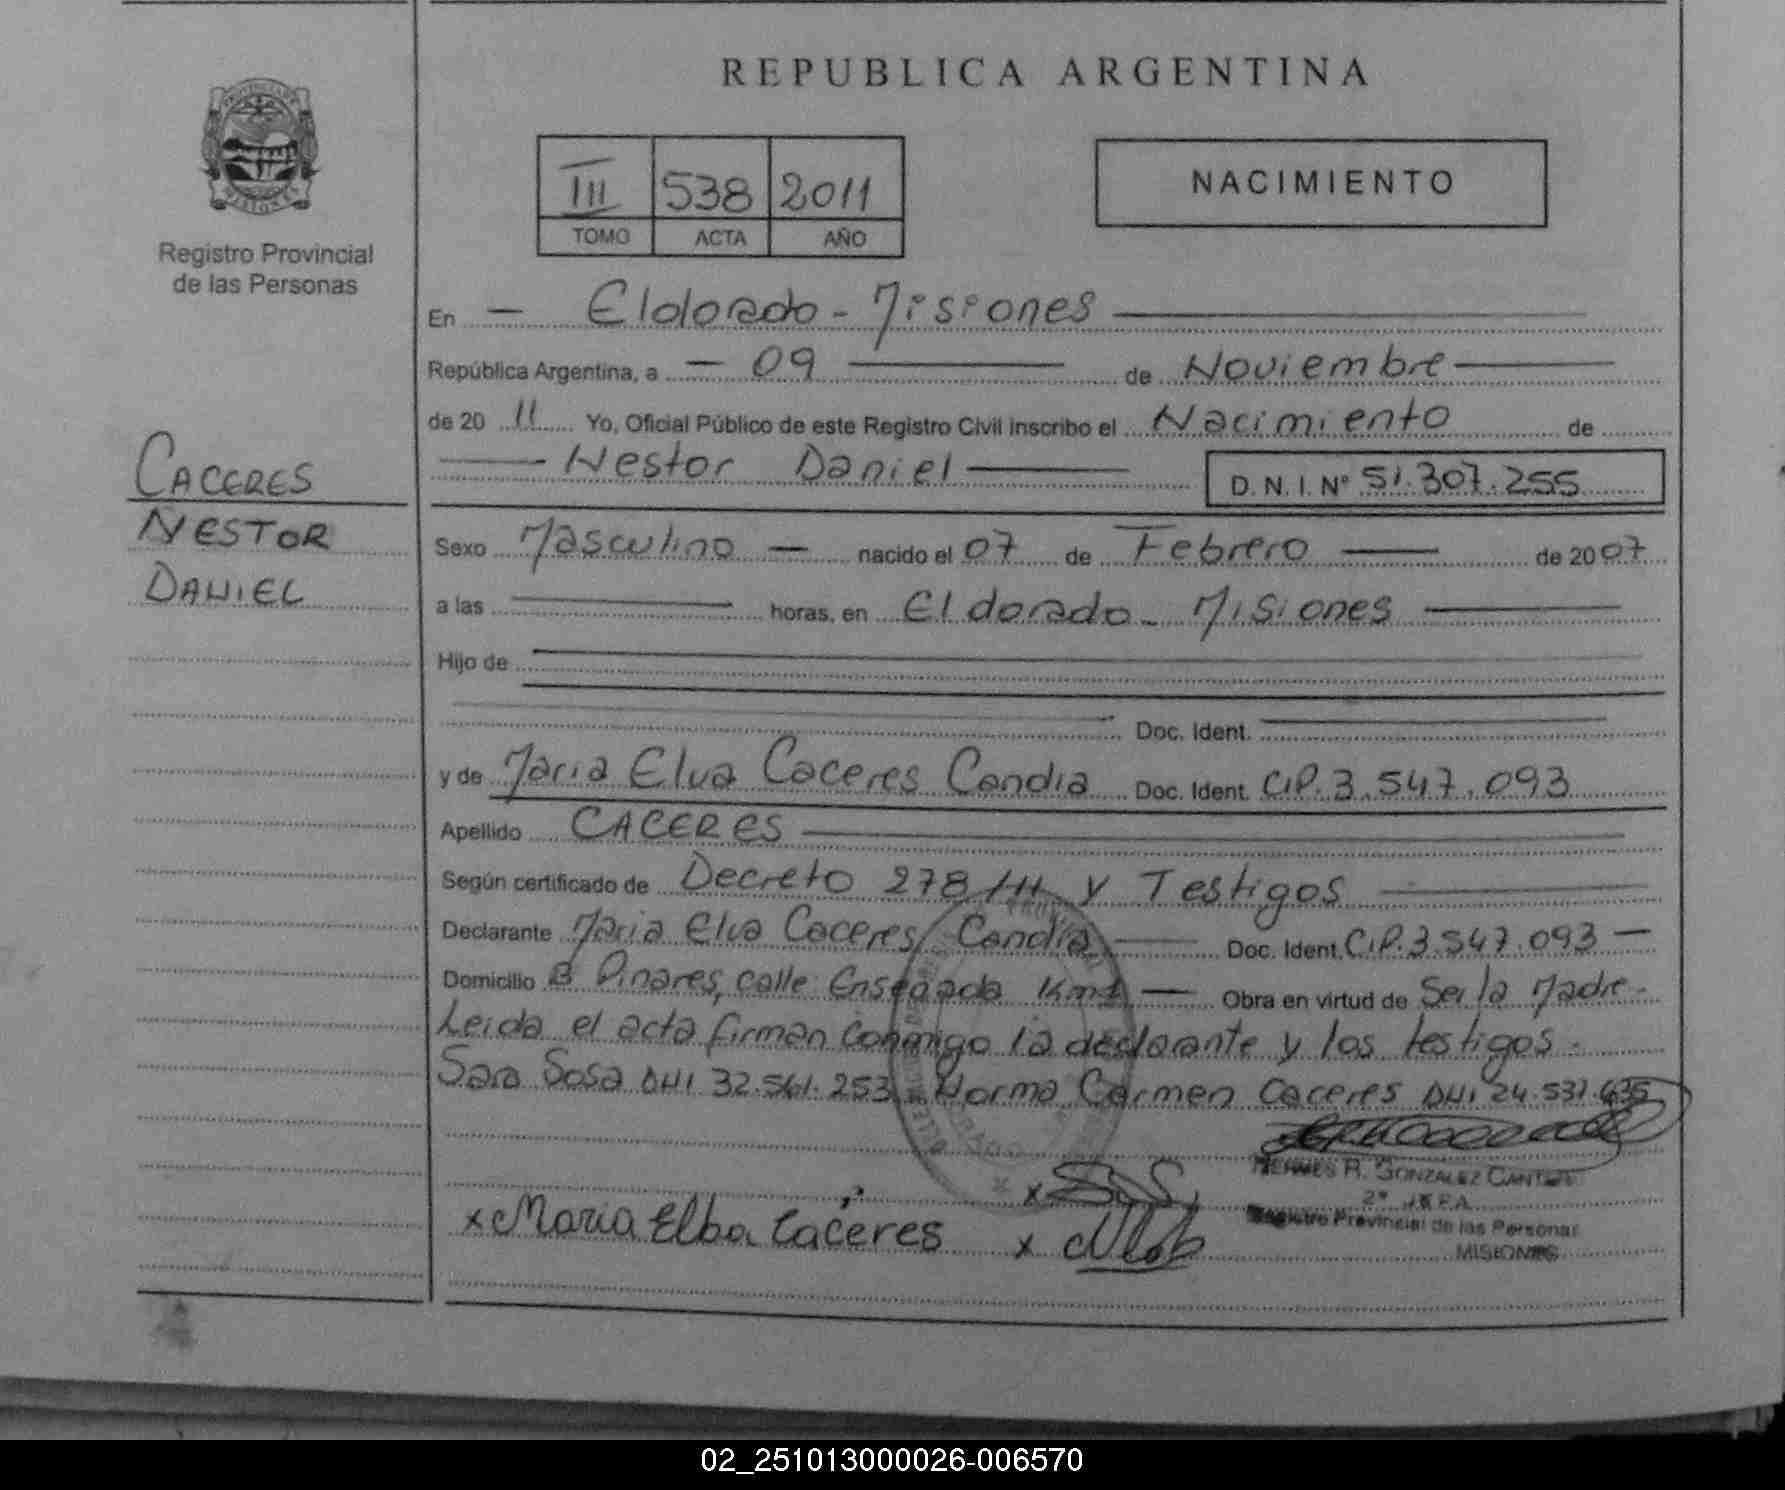 REPUBLICA ARGENTINA
Registro Provincial
de las Personas
III 538 2011
TOMO ACTA AÑO
NACIMIENTO
En Eldorado - Misiones
República Argentina, a 09 de Noviembre
de 20 11 Yo, Oficial Público de este Registro Civil inscribo el Nacimiento de
Nestor Daniel D. N. I. Nº 51.307.255
CACERES
NESTOR
DANIEL
Sexo Masculino nacido el 07 de Febrero de 20 07
a las horas, en Eldorado - Misiones
Hijo de
Doc. Ident.
y de Maria Elva Caceres Candia Doc. Ident. C.P. 3.547.093
Apellido CACERES
Según certificado de Decreto 278/11 y Testigos
Declarante Maria Elva Caceres Candia Doc. Ident. C.P. 3.547.093
Domicilio B Pinares, calle Ensenada Km1 Obra en virtud de Ser la Madre.
Leida el acta firman conmigo la declarante y los testigos.
Sara Sosa DNI 32.561.253 Norma Carmen Caceres DNI 24.537.635
HERMES R. GONZALEZ
2º JEFA
Registro Provincial de las Personas
MISIONES
x Maria Elba Caceres x
x
02_251013000026-006570